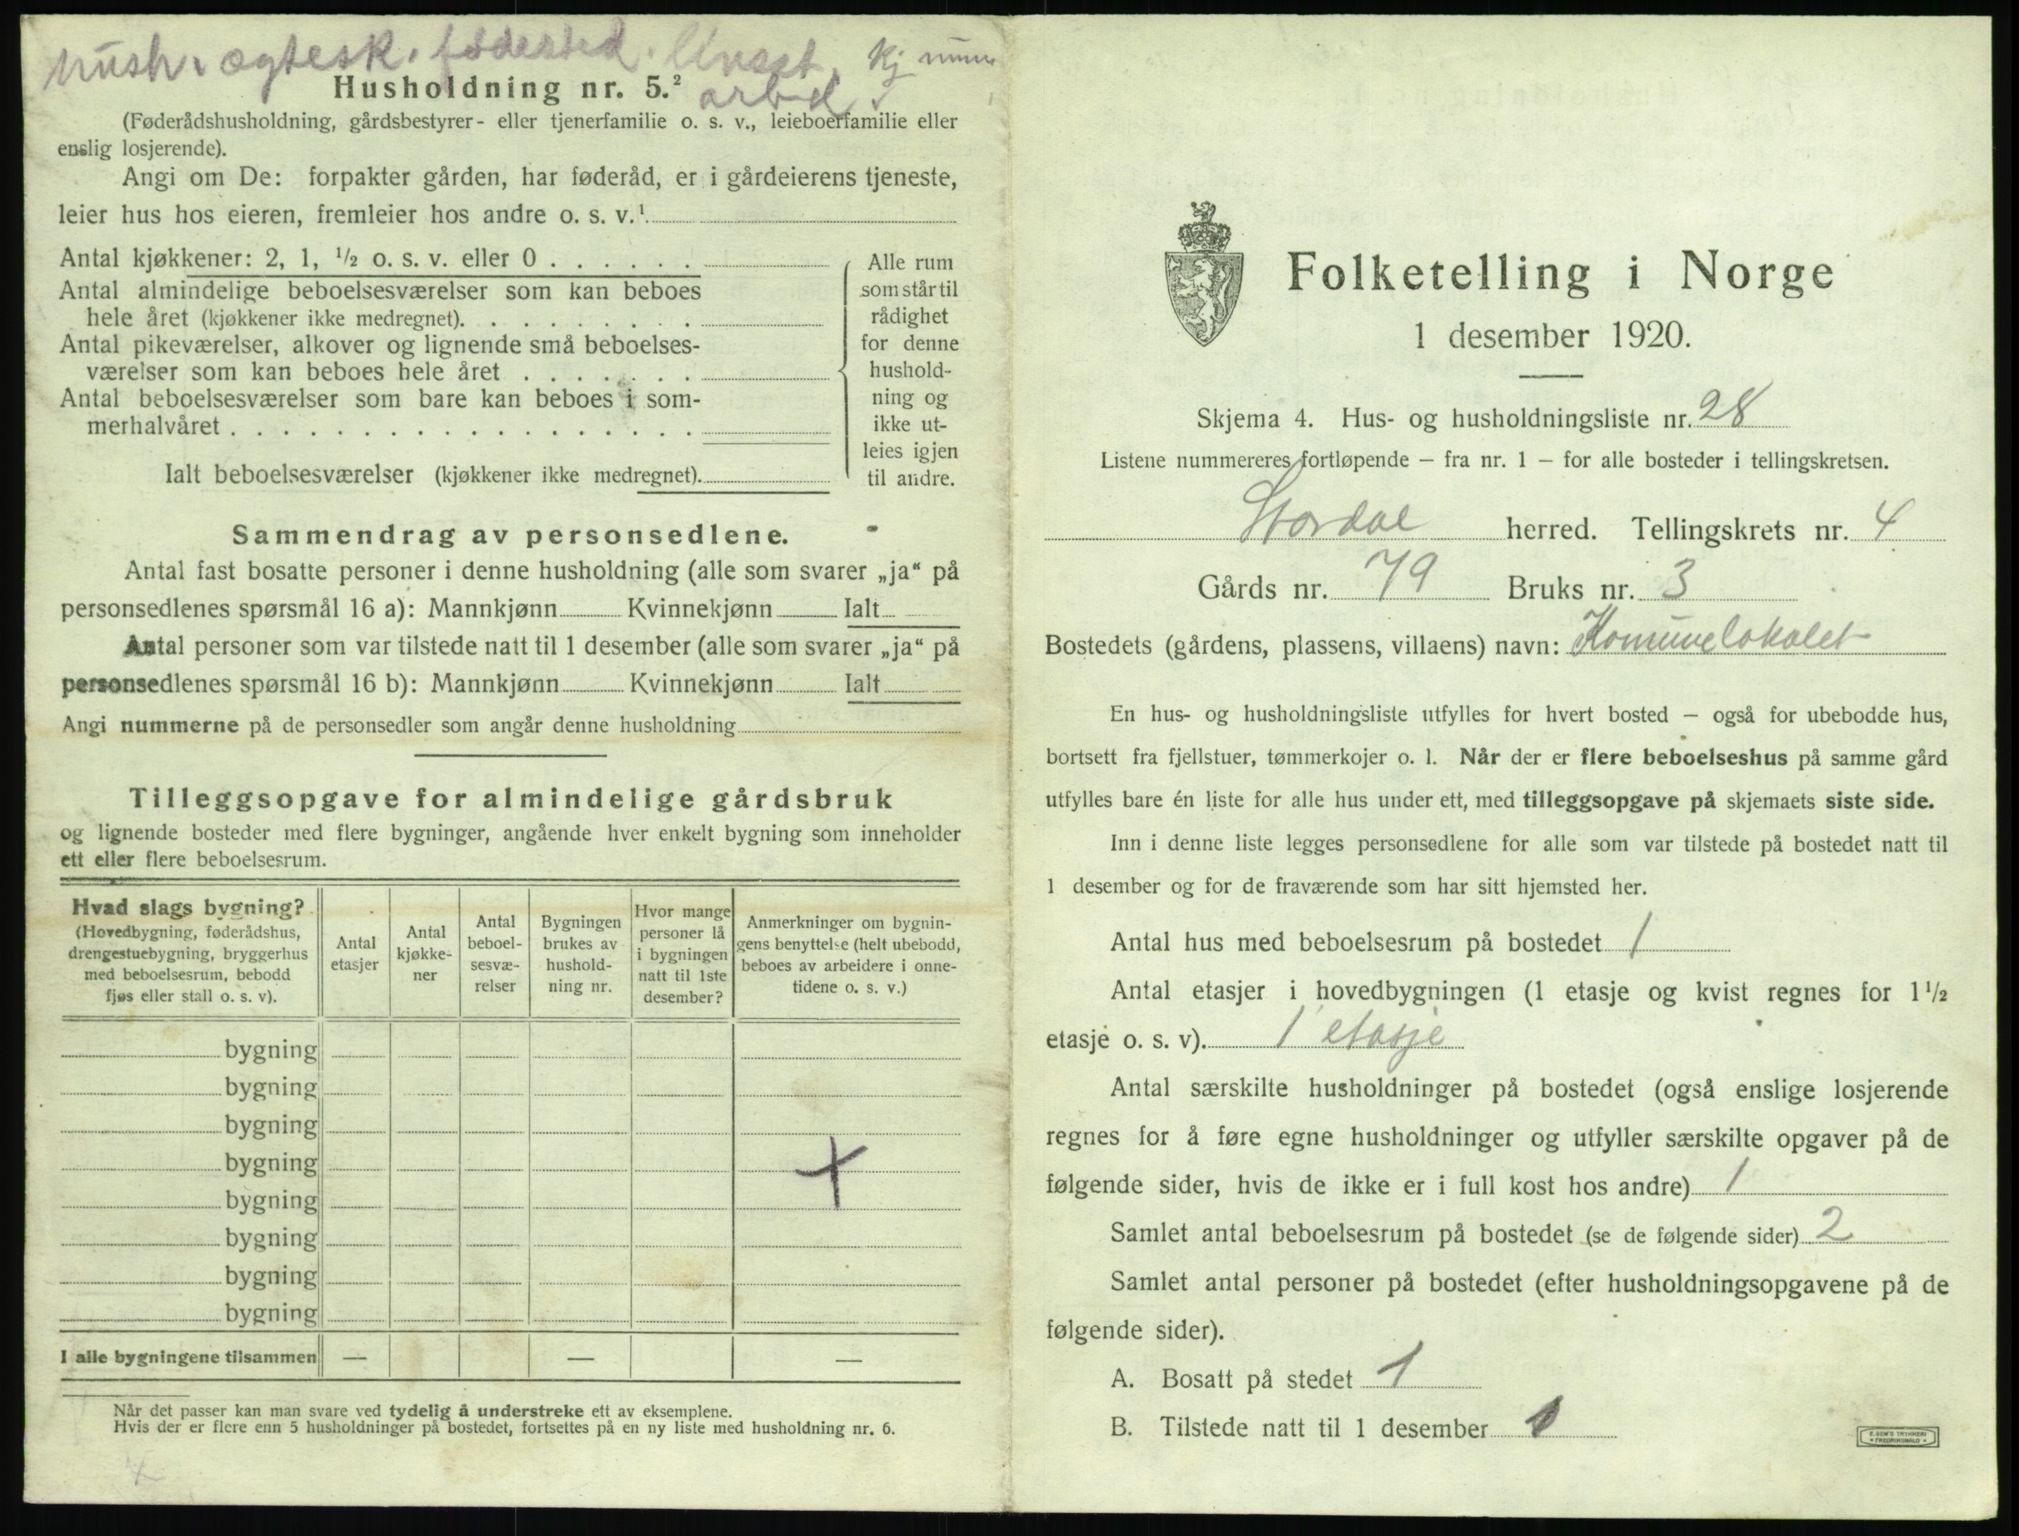 hush. ægtesk. fødested. Kj
Husholdning nr. 5.²
arbd.
(Føderådshusholdning, gårdsbestyrer- eller tjenerfamilie o. s. v., leieboerfamilie eller
enslig losjerende).
Angi om De: forpakter gården, har føderåd, er i gårdeierens tjeneste,
leier hus hos eieren, fremleier hos andre o. s. v.¹
Antal kjøkkener: 2, 1, ½ o. s. v. eller 0 . . . . . .
Antal almindelige beboelsesværelser som kan beboes
hele året (kjøkkener ikke medregnet). . . . . . . . . .
Antal pikeværelser, alkover og lignende små beboelses-
værelser som kan beboes hele året . . . . . . .
Antal beboelsesværelser som bare kan beboes i som-
merhalvåret . . . . . . . . . . . . . . . . . .
Ialt beboelsesværelser (kjøkkener ikke medregnet).
Alle rum
som står til
rådighet
for denne
hushold-
ning og
ikke ut-
leies igjen
til andre.
Sammendrag av personsedlene.
Antal fast bosatte personer i denne husholdning (alle som svarer „ja“ på
personsedlenes spørsmål 16 a): Mannkjønn Kvinnekjønn Ialt
Antal personer som var tilstede natt til 1 desember (alle som svarer „ja“ på
personsedlenes spørsmål 16 b): Mannkjønn Kvinnekjønn Ialt
Angi nummerne på de personsedler som angår denne husholdning
Tilleggsopgave for almindelige gårdsbruk
og lignende bosteder med flere bygninger, angående hver enkelt bygning som inneholder
ett eller flere beboelsesrum.
Hvad slags bygning?
(Hovedbygning, føderådshus,
drengestuebygning, bryggerhus
med beboelsesrum, bebodd
fjøs eller stall o. s. v).
Antal
etasjer
Antal
kjøkke-
ner
Antal
beboel-
sesvæ-
relser
Bygningen
brukes av
hushold-
ning nr.
Hvor mange
personer lå
i bygningen
natt til 1ste
desember?
Anmerkninger om bygnin-
gens benyttelse (helt ubebodd,
beboes av arbeidere i onne-
tidene o. s. v.)
bygning
bygning
bygning
bygning
bygning
bygning
bygning
bygning
I alle bygningene tilsammen — — —
Når det passer kan man svare ved tydelig å understreke ett av eksemplene.
Hvis der er flere enn 5 husholdninger på bostedet, fortsettes på en ny liste med husholdning nr. 6.
Folketelling i Norge
1 desember 1920.
Skjema 4. Hus- og husholdningsliste nr. 28
Listene nummereres fortløpende – fra nr. 1 – for alle bosteder i tellingskretsen.
Stordal herred. Tellingskrets nr. 4
Gårds nr. 79 Bruks nr. 3
Bostedets (gårdens, plassens, villaens) navn: Komunelokalet
En hus- og husholdningsliste utfylles for hvert bosted – også for ubebodde hus,
bortsett fra fjellstuer, tømmerkojer o. l. Når der er flere beboelseshus på samme gård
utfylles bare én liste for alle hus under ett, med tilleggsopgave på skjemaets siste side.
Inn i denne liste legges personsedlene for alle som var tilstede på bostedet natt til
1 desember og for de fraværende som har sitt hjemsted her.
Antal hus med beboelsesrum på bostedet 1
Antal etasjer i hovedbygningen (1 etasje og kvist regnes for 1½
etasje o. s. v). 1 etasje
Antal særskilte husholdninger på bostedet (også enslige losjerende
regnes for å føre egne husholdninger og utfyller særskilte opgaver på de
følgende sider, hvis de ikke er i full kost hos andre) 1
Samlet antal beboelsesrum på bostedet (se de følgende sider) 2
Samlet antal personer på bostedet (efter husholdningsopgavene på de
følgende sider).
A. Bosatt på stedet 1
B. Tilstede natt til 1 desember
E. SEM'S TRYKKERI
FREDRIKSHALD